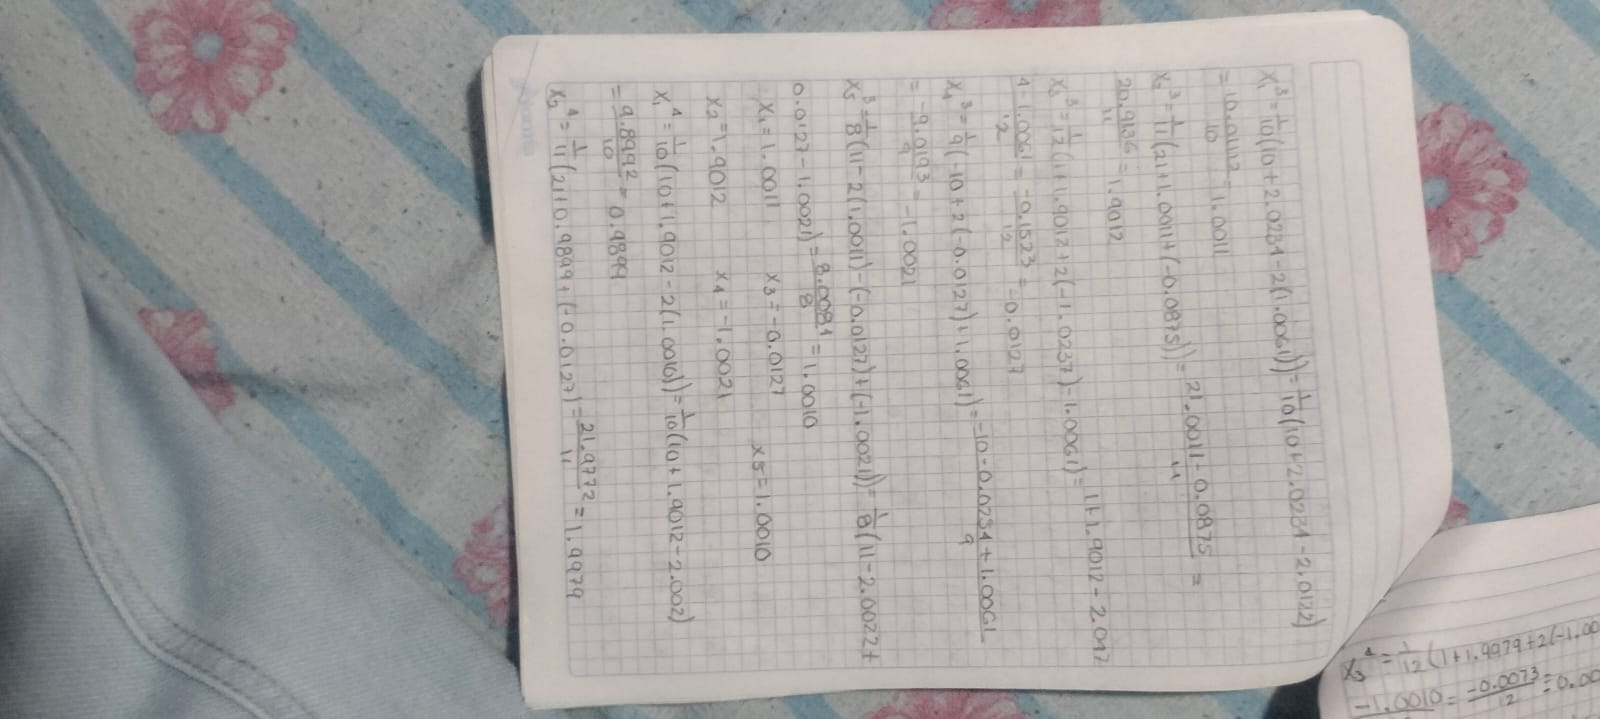 x₁³ = 1/10 (10 + 2.0234 - 2(1.0061)) = 1/10 (10 + 2.0234 - 2.0122)
= 10.0112/10 = 1.0011
x₂³ = 1/11 (21 + 1.0011 + (-0.0875)) = 21.0011 - 0.0875/11 =
20.9136/11 = 1.9012
x₃³ = 1/12 (1 + 1.9012 + 2(-1.0237) - 1.0061) = 1 + 1.9012 - 2.047
+ 1.0061/12 = -0.1523/12 = -0.0127
x₄³ = 1/9 (-10 + 2(-0.0127) + 1.0061) = -10 - 0.0234 + 1.0061/9
= -9.0193/9 = -1.0021
x₅³ = 1/8 (11 - 2(1.0011) - (-0.0127) + (-1.0021)) = 1/8 (11 - 2.0022 +
0.0127 - 1.0021) = 8.0084/8 = 1.0010
x₁ = 1.0011 x₃ = -0.0127 x5 = 1.0010
x₂ = 1.9012 x₄ = -1.0021
x₁⁴ = 1/10 (10 + 1.9012 - 2(1.0016)) = 1/10 (10 + 1.9012 - 2.002)
= 9.8992/10 = 0.9899
x₂⁴ = 1/11 (21 + 0.9899 + (-0.0127) = 21.9772/11 = 1.9979
x₃⁴ = 1/12 (1 + 1.9979 + 2(-1.00
-1.0010 = -0.0073/12 = 0.00